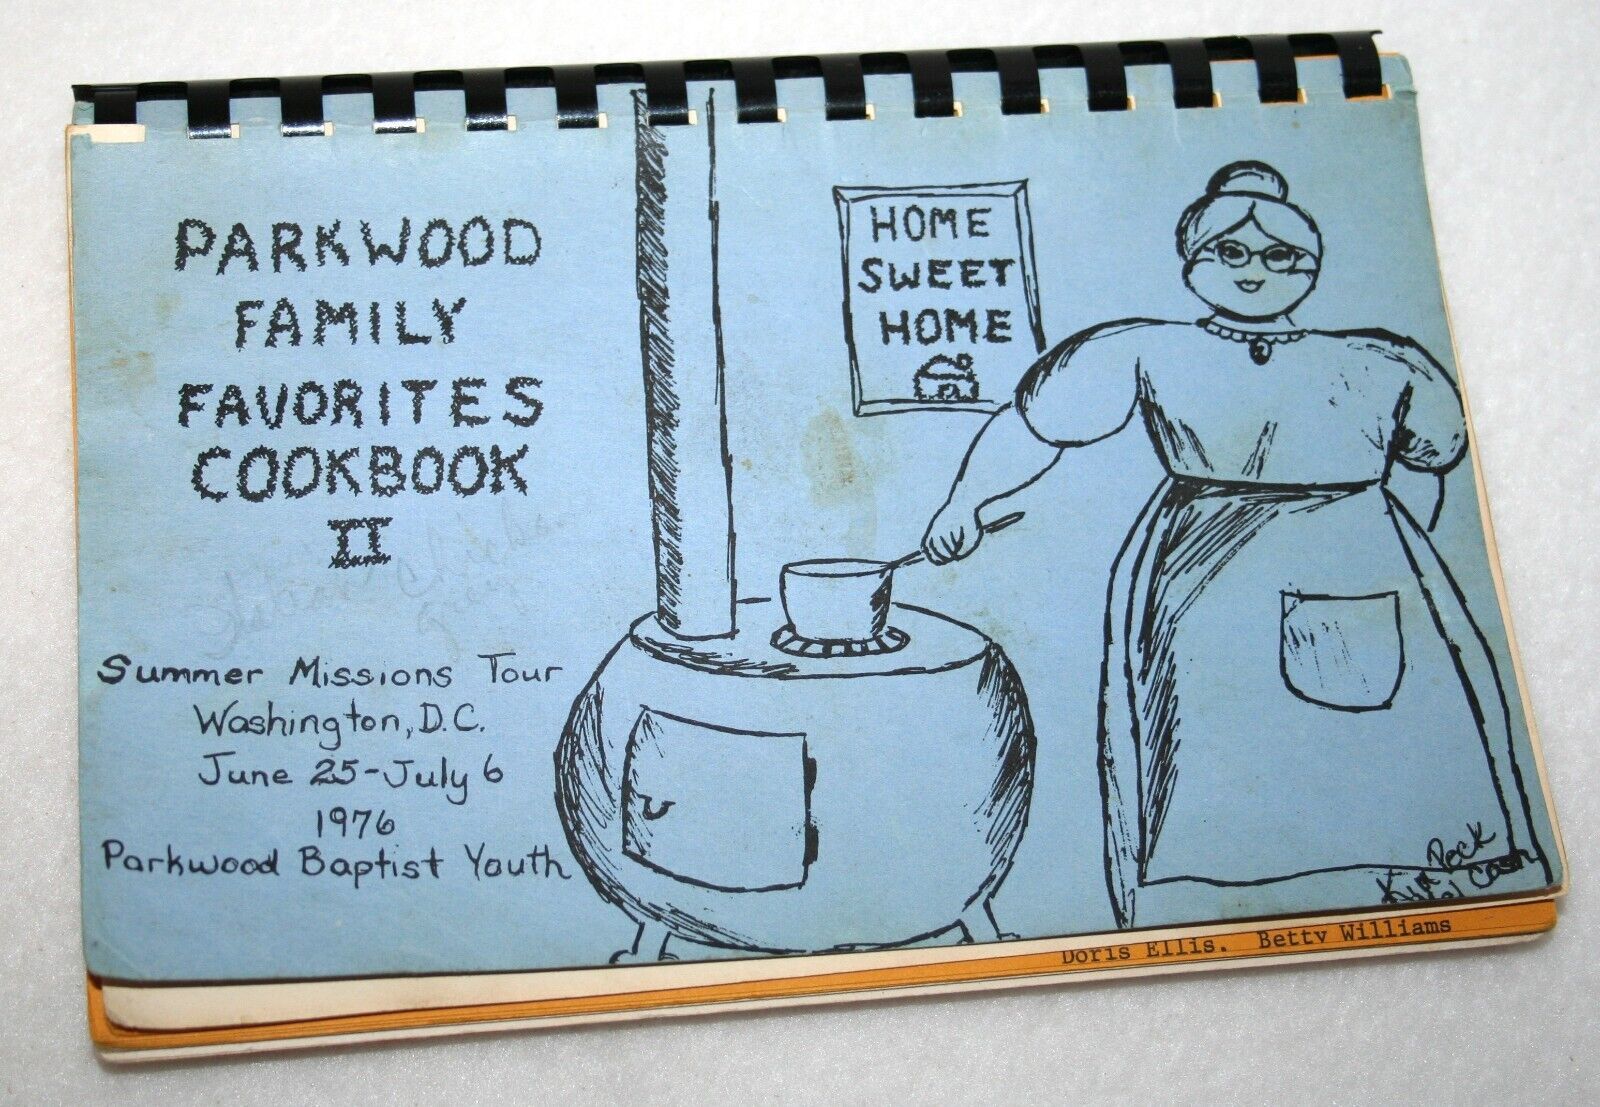 PARKWOOD
FAMILY
FAVORITES
COOKBOOK
II
HOME
SWEET
HOME
Summer Missions Tour
Washington, D.C.
June 25-July 6
1976
Parkwood Baptist Youth
Peck
Cash
Doris Ellis. Betty Williams